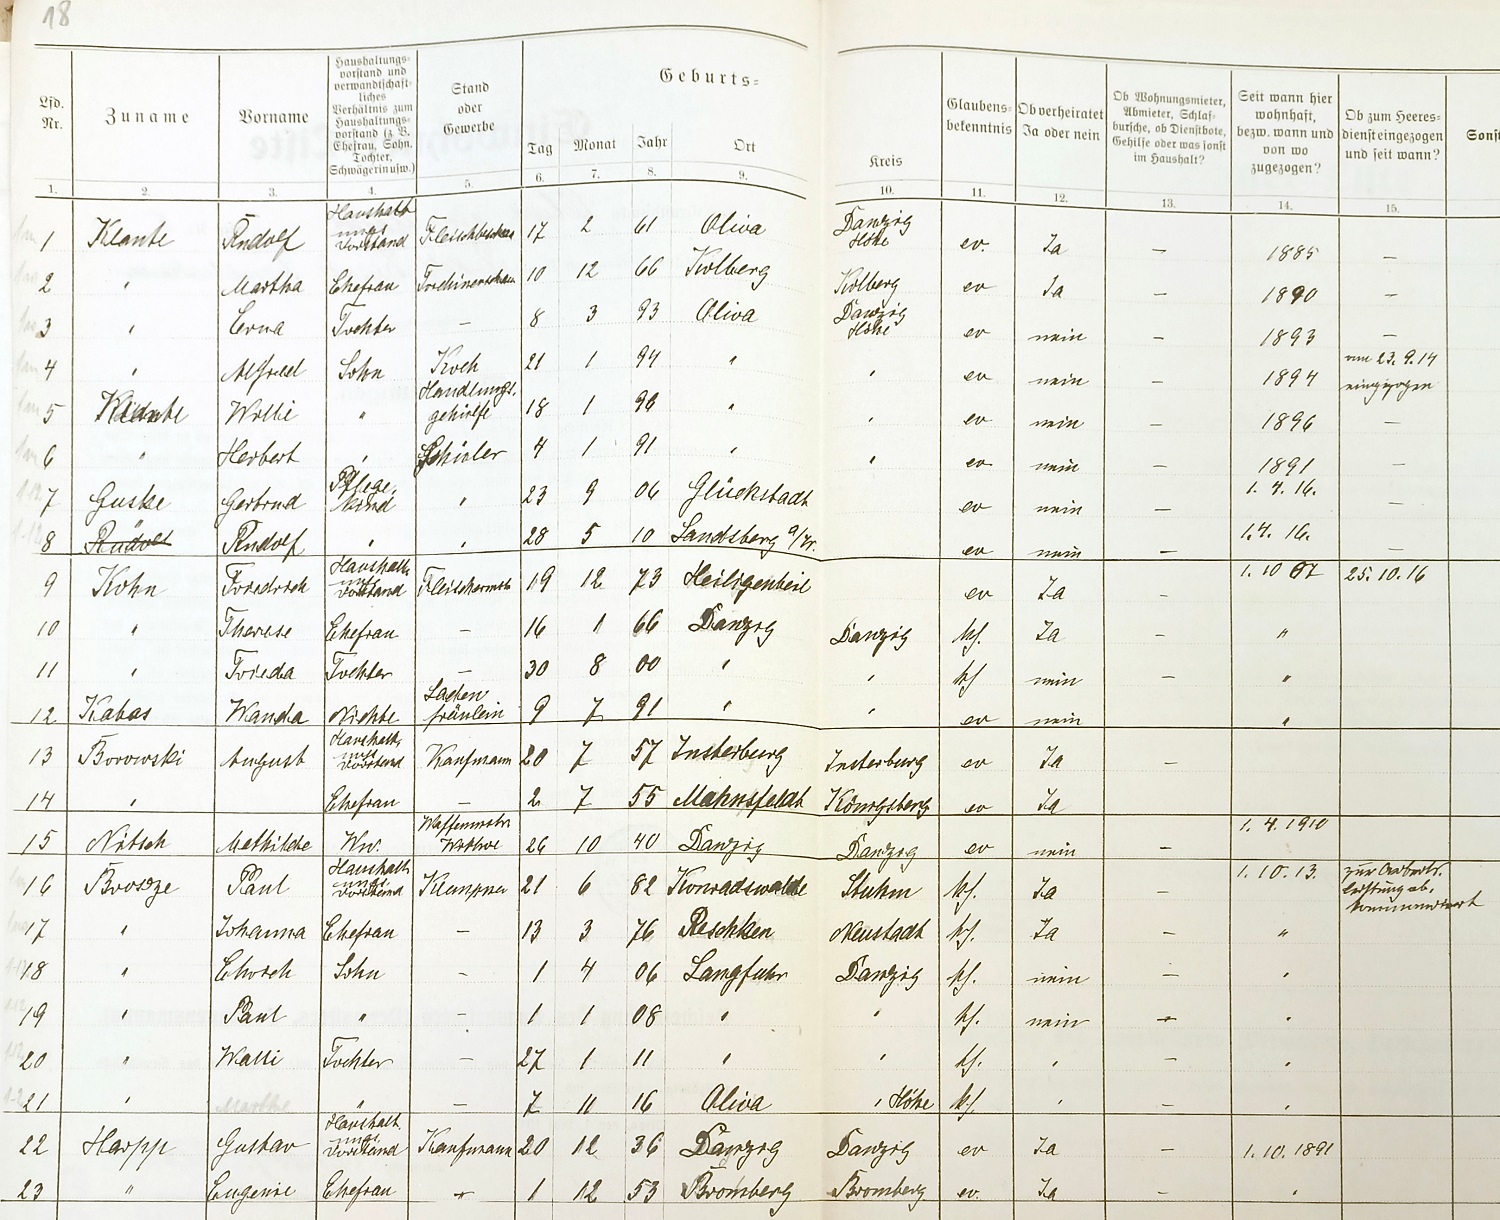 18
Geburts=
Lfd. Nr. Zuname Vorname Haushaltungs-vorstand und verwandtschaft-liches Verhältnis zum Haushaltungs-vorstand (z. B. Ehefrau, Sohn, Tochter, Schwägerin usw.) Stand oder Gewerbe Tag Monat Jahr Ort Kreis Glaubens-bekenntnis Ob verheiratet Ja oder nein Ob Wohnungsmieter, Abmieter, Schlaf-bursche, ob Dienstbote, Gehilfe oder was sonst im Haushalt? Seit wann hier wohnhaft, bezw. wann und von wo zugezogen? Ob zum Heeres-dienst eingezogen und seit wann?
1. 2. 3. 4. 5. 6. 7. 8. 9. 10. 11. 12. 13. 14. 15.
1 Klante Rudolf Haushalt ungs vorstand 17 2 61 Oliva Danzig Höhe ev. Ja – 1885 –
2 " Martha Ehefrau 10 12 66 Kolberg Kolberg ev Ja – 1890 –
3 " Erna Tochter – 8 3 93 Oliva Danzig Höhe ev nein – 1893 –
4 " Alfred Sohn Koch 21 1 94 " " ev nein – 1894 am 23.9.14 eingezogen
5 Klante Willi " Handlungs. gehilfe 18 1 96 " " ev nein – 1896 –
6 " Herbert " Schüler 4 1 91 " " ev nein – 1891 –
7 Guske Gertrud Pflege, kind " 23 9 06 Glückstadt ev nein – 1. 4. 16. –
8 Rudolf " " 28 5 10 Landsberg a/W. ev nein – 1.4. 16. –
9 Kohn Friedrich Haushalt ungs vorstand Fleischermstr 19 12 73 Heiligenbeil ev Ja – 1. 10 07 25. 10. 16
10 " Therese Ehefrau – 16 1 66 Danzig Danzig kf. Ja – "
11 " Frieda Tochter – 30 8 00 " " kf nein – "
12 Kabas Wanda Nichte Laden fräulein 9 7 91 " " ev nein "
13 Borowski August Haushalt ungs vorstand Kaufmann 20 7 57 Insterburg Insterburg ev Ja –
14 " Ehefrau – 2 7 55 Mahnsfeldt Königsberg ev Ja –
15 Nitsch Mathilde Ww. Wittwe 26 10 40 Danzig Danzig ev nein – 1. 4. 1910
16 Paul Haushalt ungs vorstand Klempner 21 6 82 Konradswalde Stuhm kf. Ja – 1. 10. 13. zur Arbeits.
17 " Johanna Ehefrau – 13 3 76 Reschken Neustadt kf. Ja – "
18 " Sohn – 1 4 06 Langfuhr Danzig kf. nein – "
19 " Paul " 1 1 08 " " kf. nein – "
20 " Walli Tochter – 27 1 11 " " kf. " – "
21 " Marthe " – 7 11 16 Oliva " Höhe kf. " – "
22 Harpp Gustav Haushalt ungs vorstand Kaufmann 20 12 36 Danzig Danzig ev Ja – 1. 10. 1891
23 " Eugenie Ehefrau – 1 12 53 Bromberg Bromberg ev. Ja – "